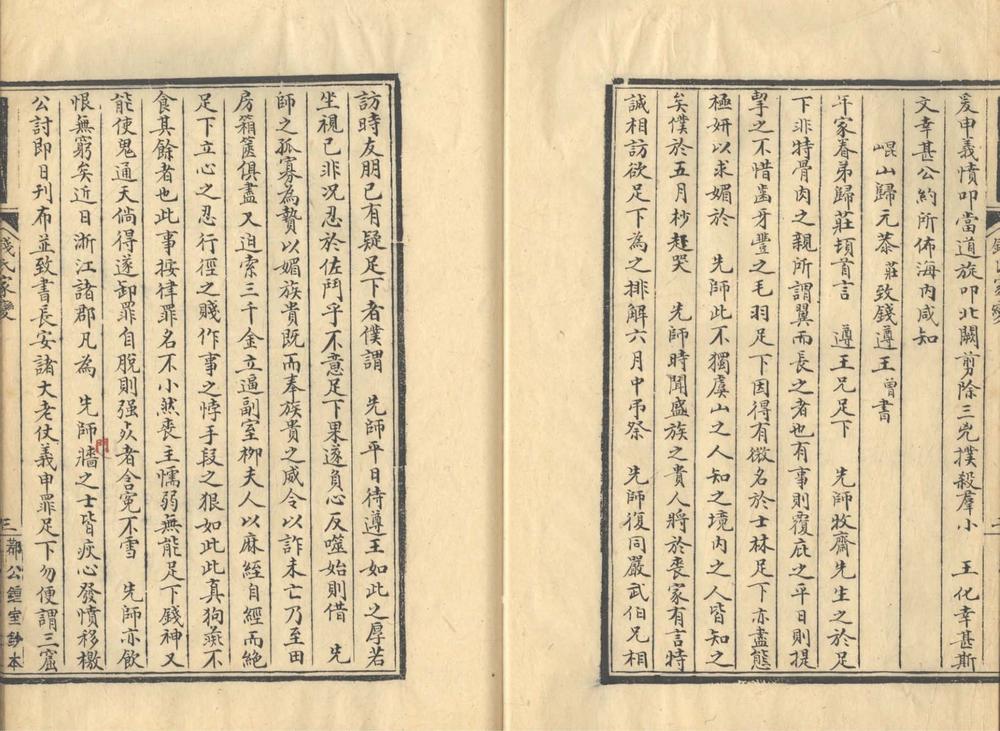 爰申義憤叩當道旋叩北闕剪除三兇撲殺羣小　王化幸甚斯
文幸甚公約所佈海內咸知
崐山歸元恭莊致錢遵王曾書
年家眷弟歸莊頓首言　遵王兄足下　先師牧齋先生之於足
下非特骨肉之親所謂翼而長之者也有事則覆庇之平日則提
挈之不惜齒牙豐之毛羽足下因得有微名於士林足下亦盡態
極妍以求媚於　先師此不獨虞山之人知之境內之人皆知之
矣僕於五月杪趨哭　先師時聞盛族之貴人將於喪家有言特
誠相訪欲足下為之排解六月中弔祭　先師復同嚴武伯兄相
訪時友朋已有疑足下者僕謂　先師平日待遵王如此之厚若
坐視已非况忍於佐鬥乎不意足下果遂負心反噬始則借　先
師之孤寡為贄以媚族貴既而奉族貴之威令以詐未亡乃至田
房箱篋俱盡又迫索三千金立逼副室柳夫人以麻絰自經而絶
足下立心之忍行徑之賤作事之悖手段之狠如此此真狗彘不
食其餘者也此事按律罪名不小然喪主懦弱無能足下錢神又
能使鬼通天倘得遂卸罪自脫則强死者含寃不雪　先師亦飲
恨無窮矣近日浙江諸郡凡為　先師門牆之士皆疚心發憤移檄
公討即日刊布並致書長安諸大老仗義申罪足下勿便謂三窟
錢氏家變
三
鄰公鍾室鈔本